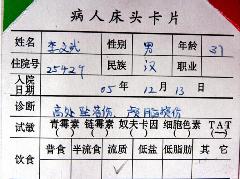 病人床头卡片
姓名 李文斌 性别 男 年龄 37
住院号 25427 民族 汉 职业
入院日期 05年12月13日
诊断 高处坠落伤 颅脑损伤
试敏 青霉素 链霉素 奴夫卡因 细胞色素 TAT
( ) ( ) ( ) ( ) ( )
饮食 普食 半流食 流质 低盐 低脂肪 其它